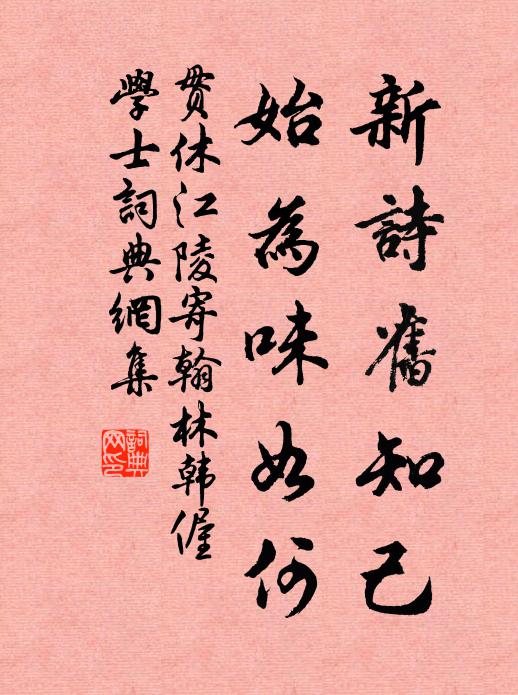 新詩舊知己
始為味如何
貫休江陵寄翰林韓偓
學士詞典網集
詞典網印